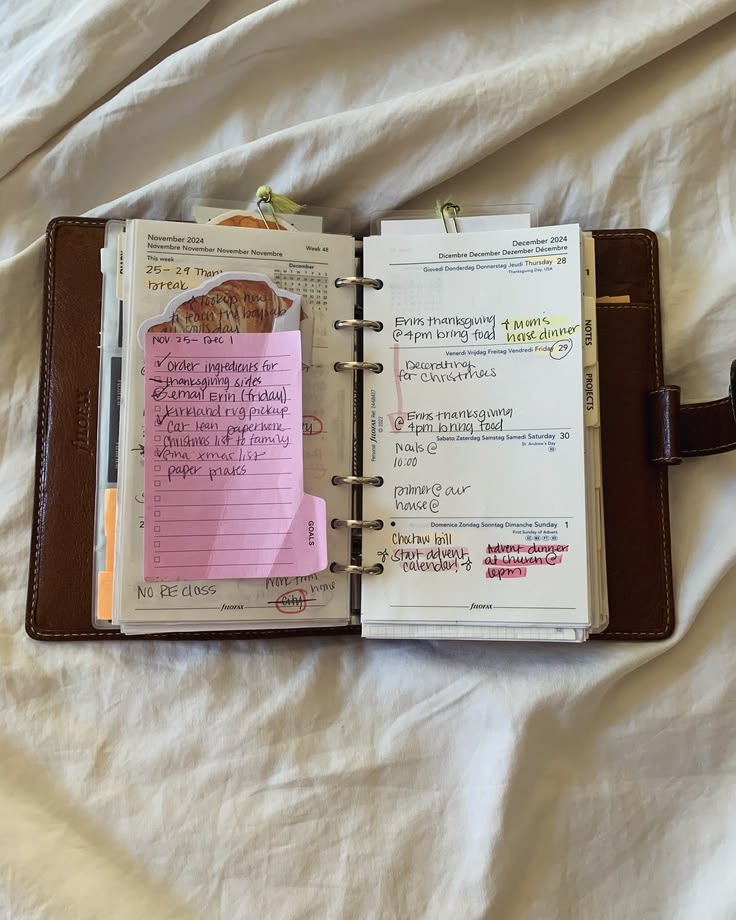 November 2024
Novembre November Novembre Noviembre
Week 48
This week
December
25 - 29 Than
break
+ lookup how
to teach the
day
NOV. 25 - DEC 1
order ingredients for
thanksgiving sides
email Erin (friday)
Kirkland rug pickup
Car lean paperwork
Christmas list to family
xmas list
paper plates
GOALS
NO RE CLASS
Work from home
city
FILOFAX
December 2024
Dicembre Dezember Dezember Décembre
Giovedi Donderdag Donnerstag Jeudi Thursday 28
Thanksgiving Day, USA
Erins thanksgiving
@ 4pm bring food
+ Mom's
house dinner
Venerdi Vrijdag Freitag Vendredi Friday 29
Decorating
for Christmas
Erins thanksgiving
@ 4pm bring food
Sabato Zaterdag Samstag Samedi Saturday 30
St. Andrew's Day
Nails @
10:00
Dinner @ our
house @
Domenica Zondag Sonntag Dimanche Sunday 1
First Sunday of Advent
Choctaw bill
Start advent
calendar!
Advent dinner
at church @
6pm
FILOFAX
Personal FILOFAX Ref: 24-68427
© 2022
NOTES
PROJECTS
FILOFAX